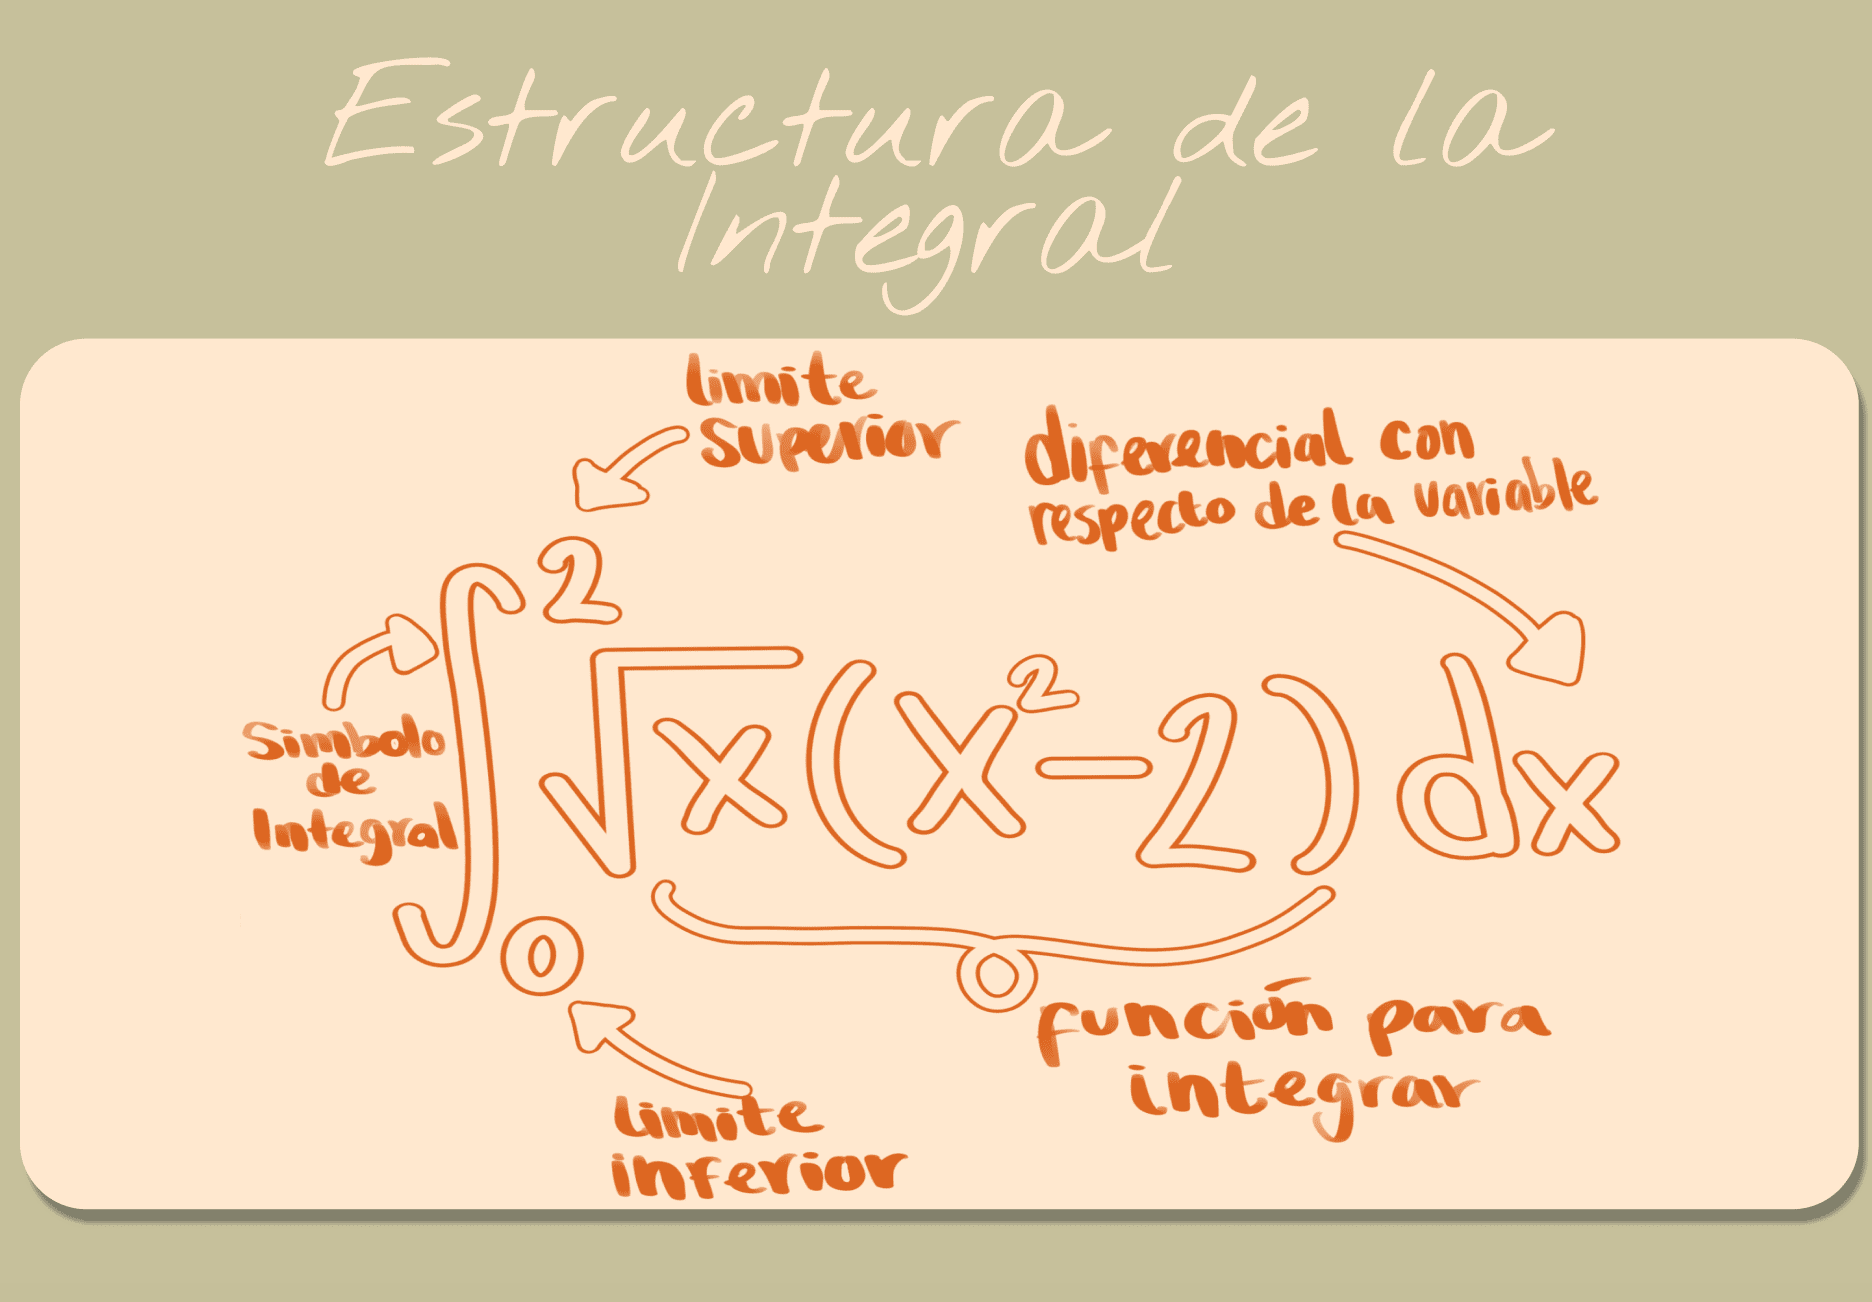 Estructura de la
Integral
limite
superior
diferencial con
respecto de la variable
Simbolo
de
Integral
∫₀² √x(x²-2) dx
función para
integrar
limite
inferior